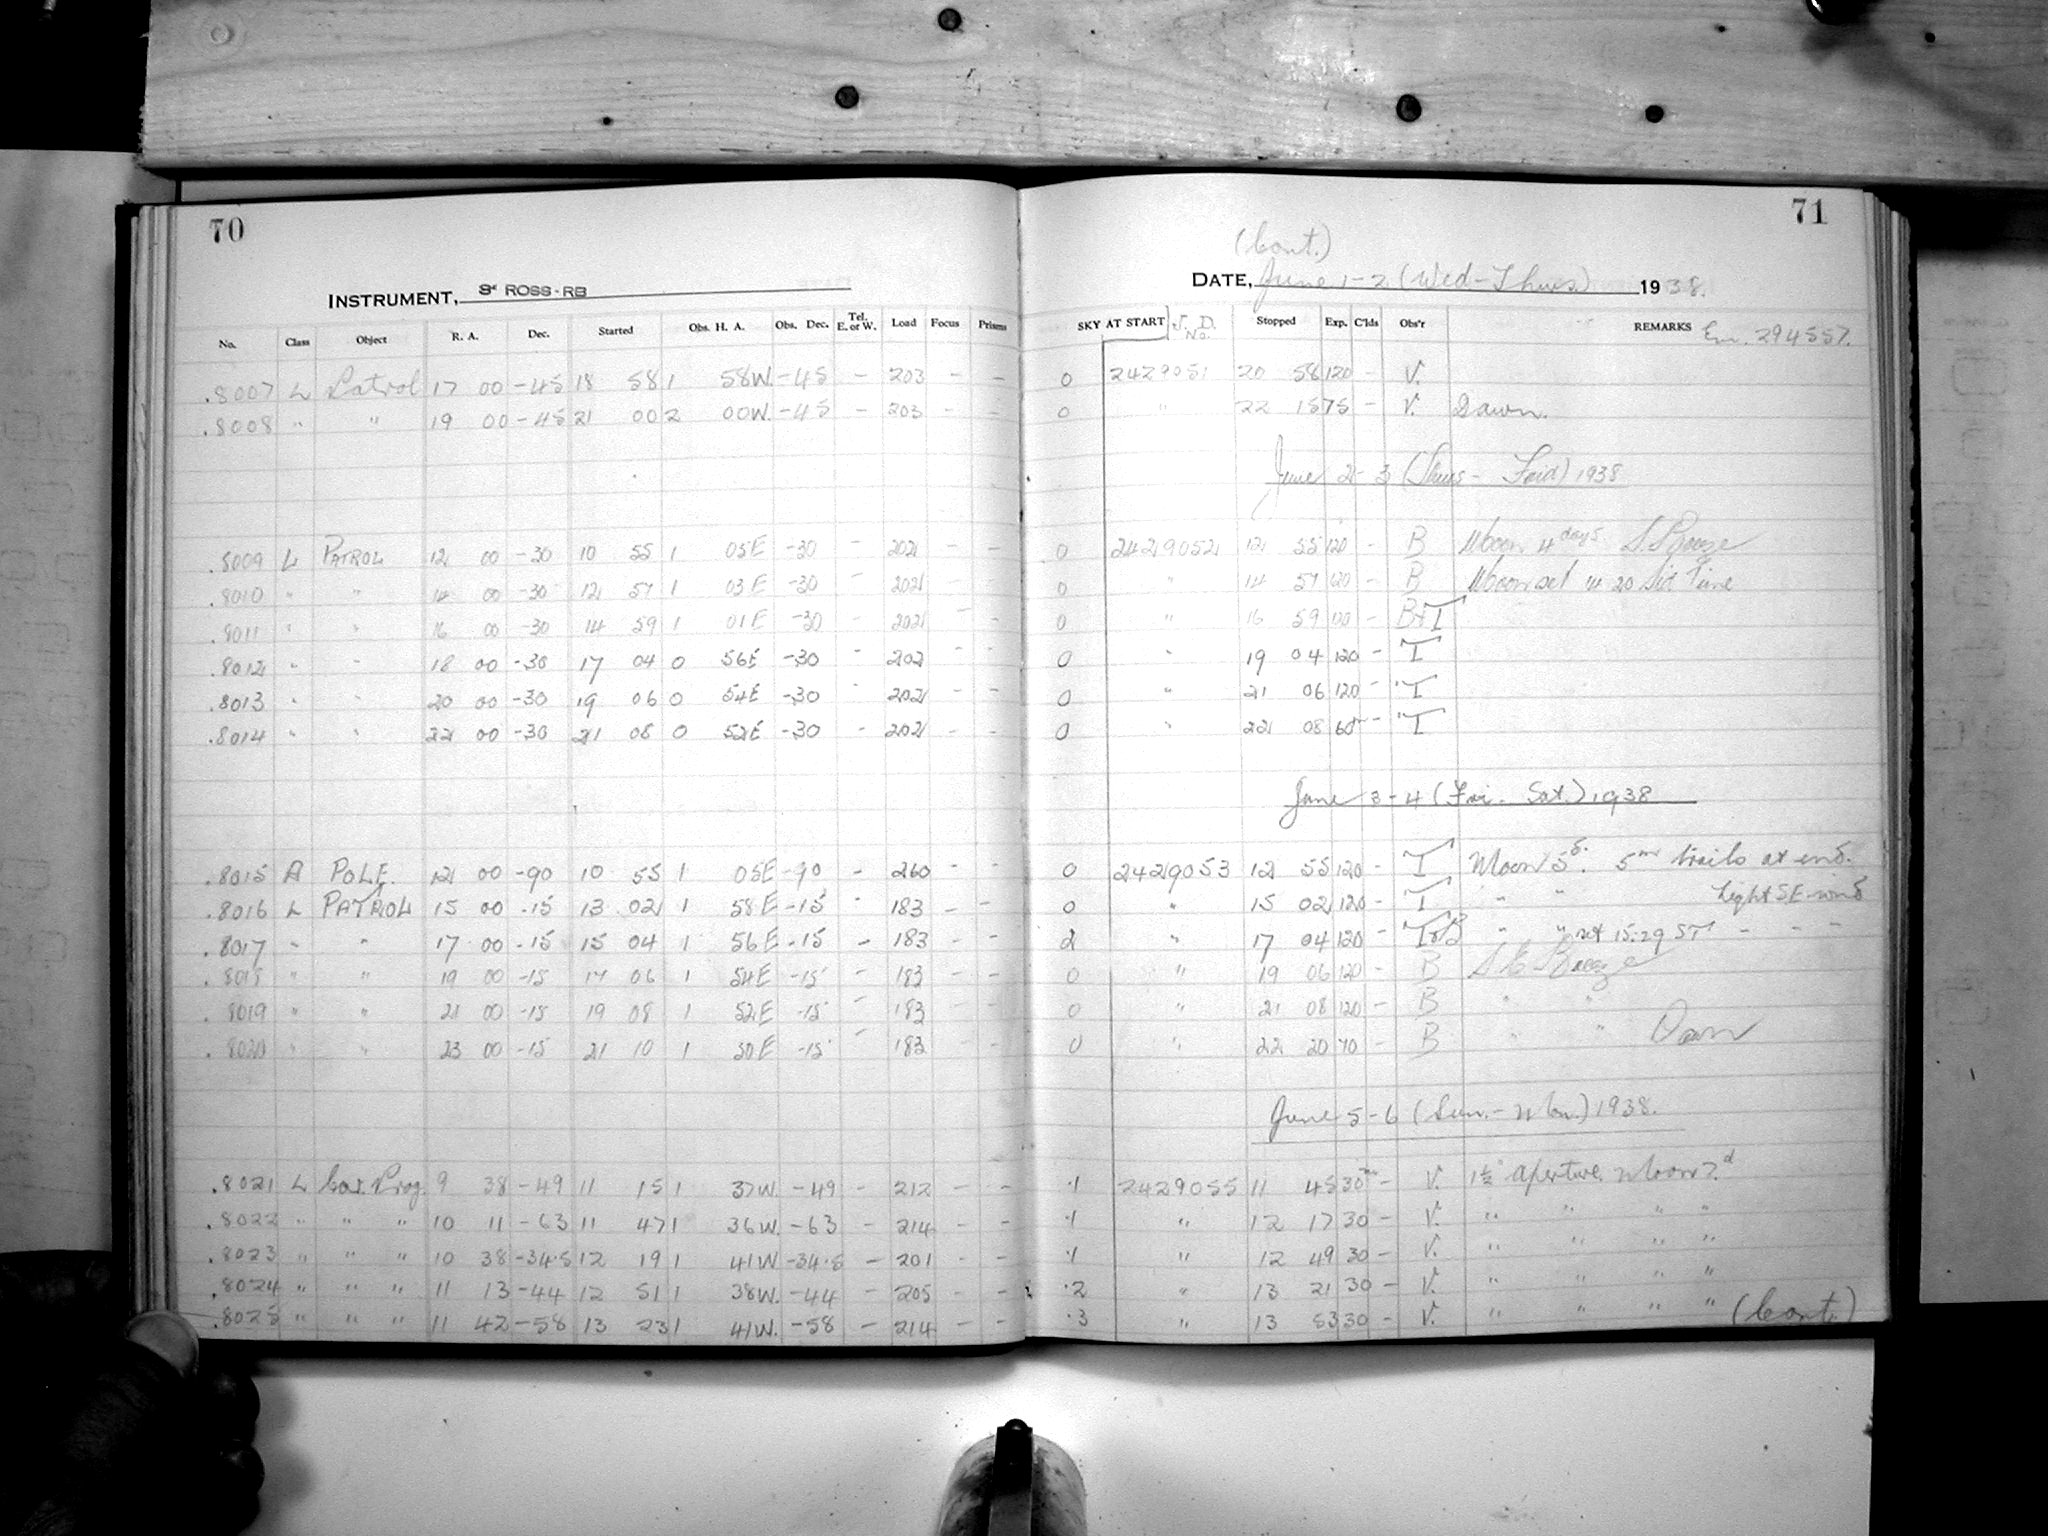 70
71
(Cont.)
INSTRUMENT, 3" ROSS-RB
DATE, June 1-2 (Wed-Thurs) 1938.
No. Class Object R. A. Dec. Started Obs. H. A. Obs. Dec. Tel. E. or W. Load Focus Prisms SKY AT START J. D. No. Stopped Exp. C'lds Obs'r REMARKS Em. 294557.
.8007 L Patrol 17 00 -45 18 58 1 58W. -45 - 203 - - 0 2429051 20 58 120 - V.
.8008 " " 19 00 -45 21 00 2 00W. -45 - 203 - - 0 " 22 15 75 - V. Dawn.
June 2-3 (Thurs - Frid) 1938
.8009 L PATROL 12 00 -30 10 55 1 05E -30 - 202 - - 0 2429052 12 55 120 - B Moon 4 days. S. Breeze
.8010 " " 14 00 -30 12 57 1 03E -30 - 202 - - 0 " 14 57 120 - B Moon set in 20 Sid Time
.8011 " " 16 00 -30 14 59 1 01E -30 - 202 - - 0 " 16 59 120 - B+T
.8012 " " 18 00 -30 17 04 0 56E -30 - 202 - - 0 " 19 04 120 - T
.8013 " " 20 00 -30 19 06 0 54E -30 - 202 - - 0 " 21 06 120 - T
.8014 " " 22 00 -30 21 08 0 52E -30 - 202 - - 0 " 22 08 60m - T
June 3-4 (Fri - Sat.) 1938
.8015 A POLE. 12 00 -90 10 55 1 05E -90 - 260 - - 0 2429053 12 55 120 - T Moon 5d. 5m trails at end.
.8016 L PATROL 15 00 -15 13 02 1 58E -15 - 183 - - 0 " 15 02 120 - T " " Light SE wind
.8017 " " 17 00 -15 15 04 1 56E -15 - 183 - - 2 " 17 04 120 - T&B " " set 15:29 ST - - -
.8018 " " 19 00 -15 17 06 1 54E -15 - 183 - - 0 " 19 06 120 - B S E Breeze
.8019 " " 21 00 -15 19 08 1 52E -15 - 183 - - 0 " 21 08 120 - B " "
.8020 " " 23 00 -15 21 10 1 50E -15 - 183 - 0 " 22 20 70 - B " " Dawn
June 5-6 (Sun. - Mon.) 1938.
.8021 L Car. Prog. 9 38 -49 11 15 1 37W. -49 - 212 - - .1 2429055 11 45 30m - V. 1½" aperture. Moon 7.d
.8022 " " " 10 11 -63 11 47 1 36W. -63 - 214 - - .1 " 12 17 30 - V. " " " "
.8023 " " " 10 38 -34.5 12 19 1 41W -34.5 - 201 - - .1 " 12 49 30 - V. " " " "
.8024 " " " 11 13 -44 12 51 1 38W. -44 - 205 - - .2 " 13 21 30 - V. " " " "
.8025 " " " 11 42 -58 13 23 1 41W. -58 - 214 - - .3 " 13 53 30 - V. " " " " (Cont.)